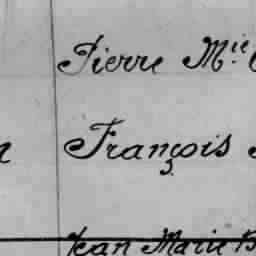 Pierre Mie
François
Jean Marie